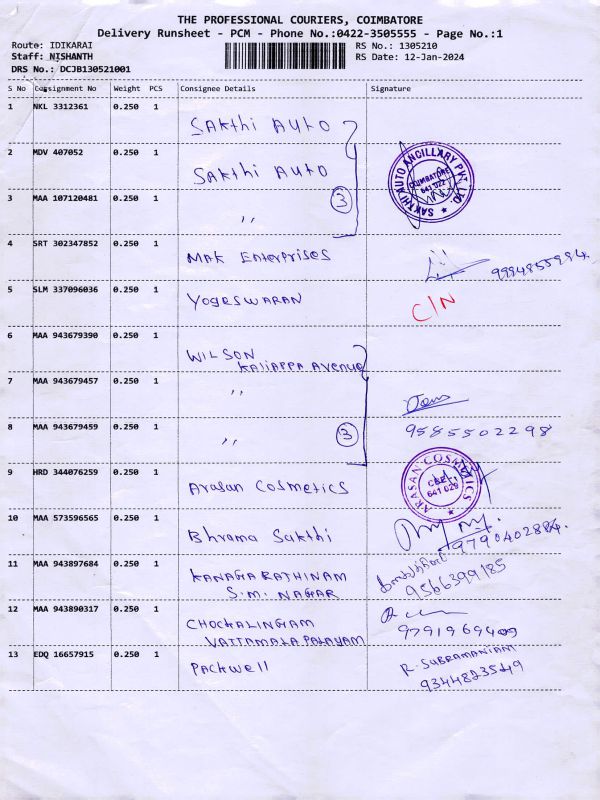 THE PROFESSIONAL COURIERS, COIMBATORE
Delivery Runsheet - PCM - Phone No.:0422-3505555 - Page No.:1
Route: IDIKARAI
RS No.: 1305210
Staff: NISHANTH
RS Date: 12-Jan-2024
DRS No.: DCJB130521001
S No Consignment No Weight PCS Consignee Details Signature
1 NKL 3312361 0.250 1 Sakthi Auto
2 MDV 407052 0.250 1 Sakthi Auto
SAKTHI AUTO ANCILLARY PVT. LTD.
COIMBATORE
641 022
3 MAA 107120481 0.250 1 ,, 3
4 SRT 302347852 0.250 1 Mak Enterprises
5 SLM 337096036 0.250 1 Yogeswaran C/N
6 MAA 943679390 0.250 1 WILSON
Kaliappa Avenue
7 MAA 943679457 0.250 1 ,,
8 MAA 943679459 0.250 1 ,, 3 9585502298
9 HRD 344076259 0.250 1 Arasan Cosmetics
ARASAN COSMETICS
641 029
10 MAA 573596565 0.250 1 Bhrama Sakthi
9790402884
11 MAA 943897684 0.250 1 KANAGARATHINAM
S.M. NAGAR
9566399185
12 MAA 943890317 0.250 1 CHOCKALINGAM
VATTAMALAPALAYAM
9791969409
13 EDQ 16657915 0.250 1 Packwell R. SUBRAMANIAM
9344823549